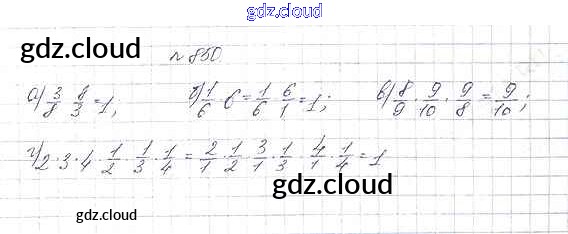 gdz.cloud
gdz.cloud
№ 850
а) 3/8 · 8/3 = 1; б) 1/6 · 6 = 1/6 · 6/1 = 1; в) 8/9 · 9/10 · 9/8 = 9/10;
г) 2 · 3 · 4 · 1/2 · 1/3 · 1/4 = 2/1 · 1/2 · 3/1 · 1/3 · 4/1 · 1/4 = 1
gdz.cloud
gdz.cloud